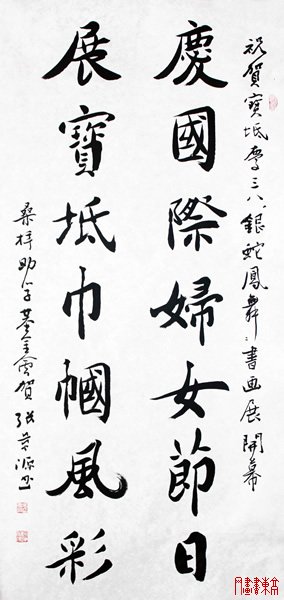 祝賀寶坻慶三八銀蛇鳳舞書画展開幕
慶國際婦女節日
展寶坻巾幗風彩
桑梓助学基金會賀 张 源书